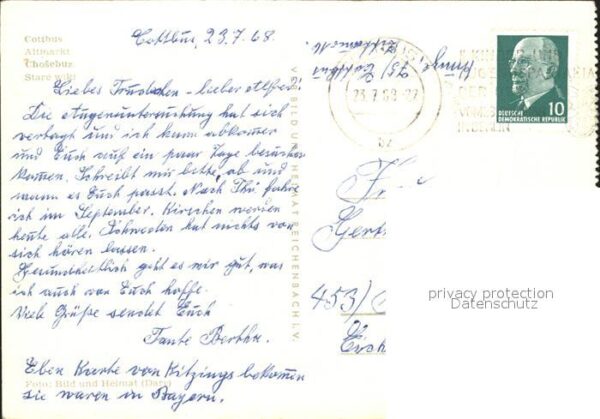 Cottbus
Altmarkt
Chośebuz
Stare wiki
Cottbus, 23.7.68.
Liebes Trudchen - lieber Alfred!
Die Augenuntersuchung hat sich
vertagt und ich kann abkommen
und Euch auf ein paar Tage besuchen
kommen. Schreibt mir bitte, ob und
wann es Euch passt. Nach Thü fahre
ich im September. Kirschen werden
heute alle. Schweden hat nichts von
sich hören lassen.
Gesundheitlich geht es mir gut, was
ich auch von Euch hoffe.
Viele Grüße sendet Euch
Tante Bertha.
Eben Karte von Kitzings bekommen
sie waren in Bayern.
Foto: Bild und Heimat (Darr)
VEB BILD UND HEIMAT REICHENBACH I. V.
75) Cottbus
23.7.68-22
10
DEUTSCHE
DEMOKRATISCHE REPUBLIK
Gert
453)
privacy protection
Datenschutz